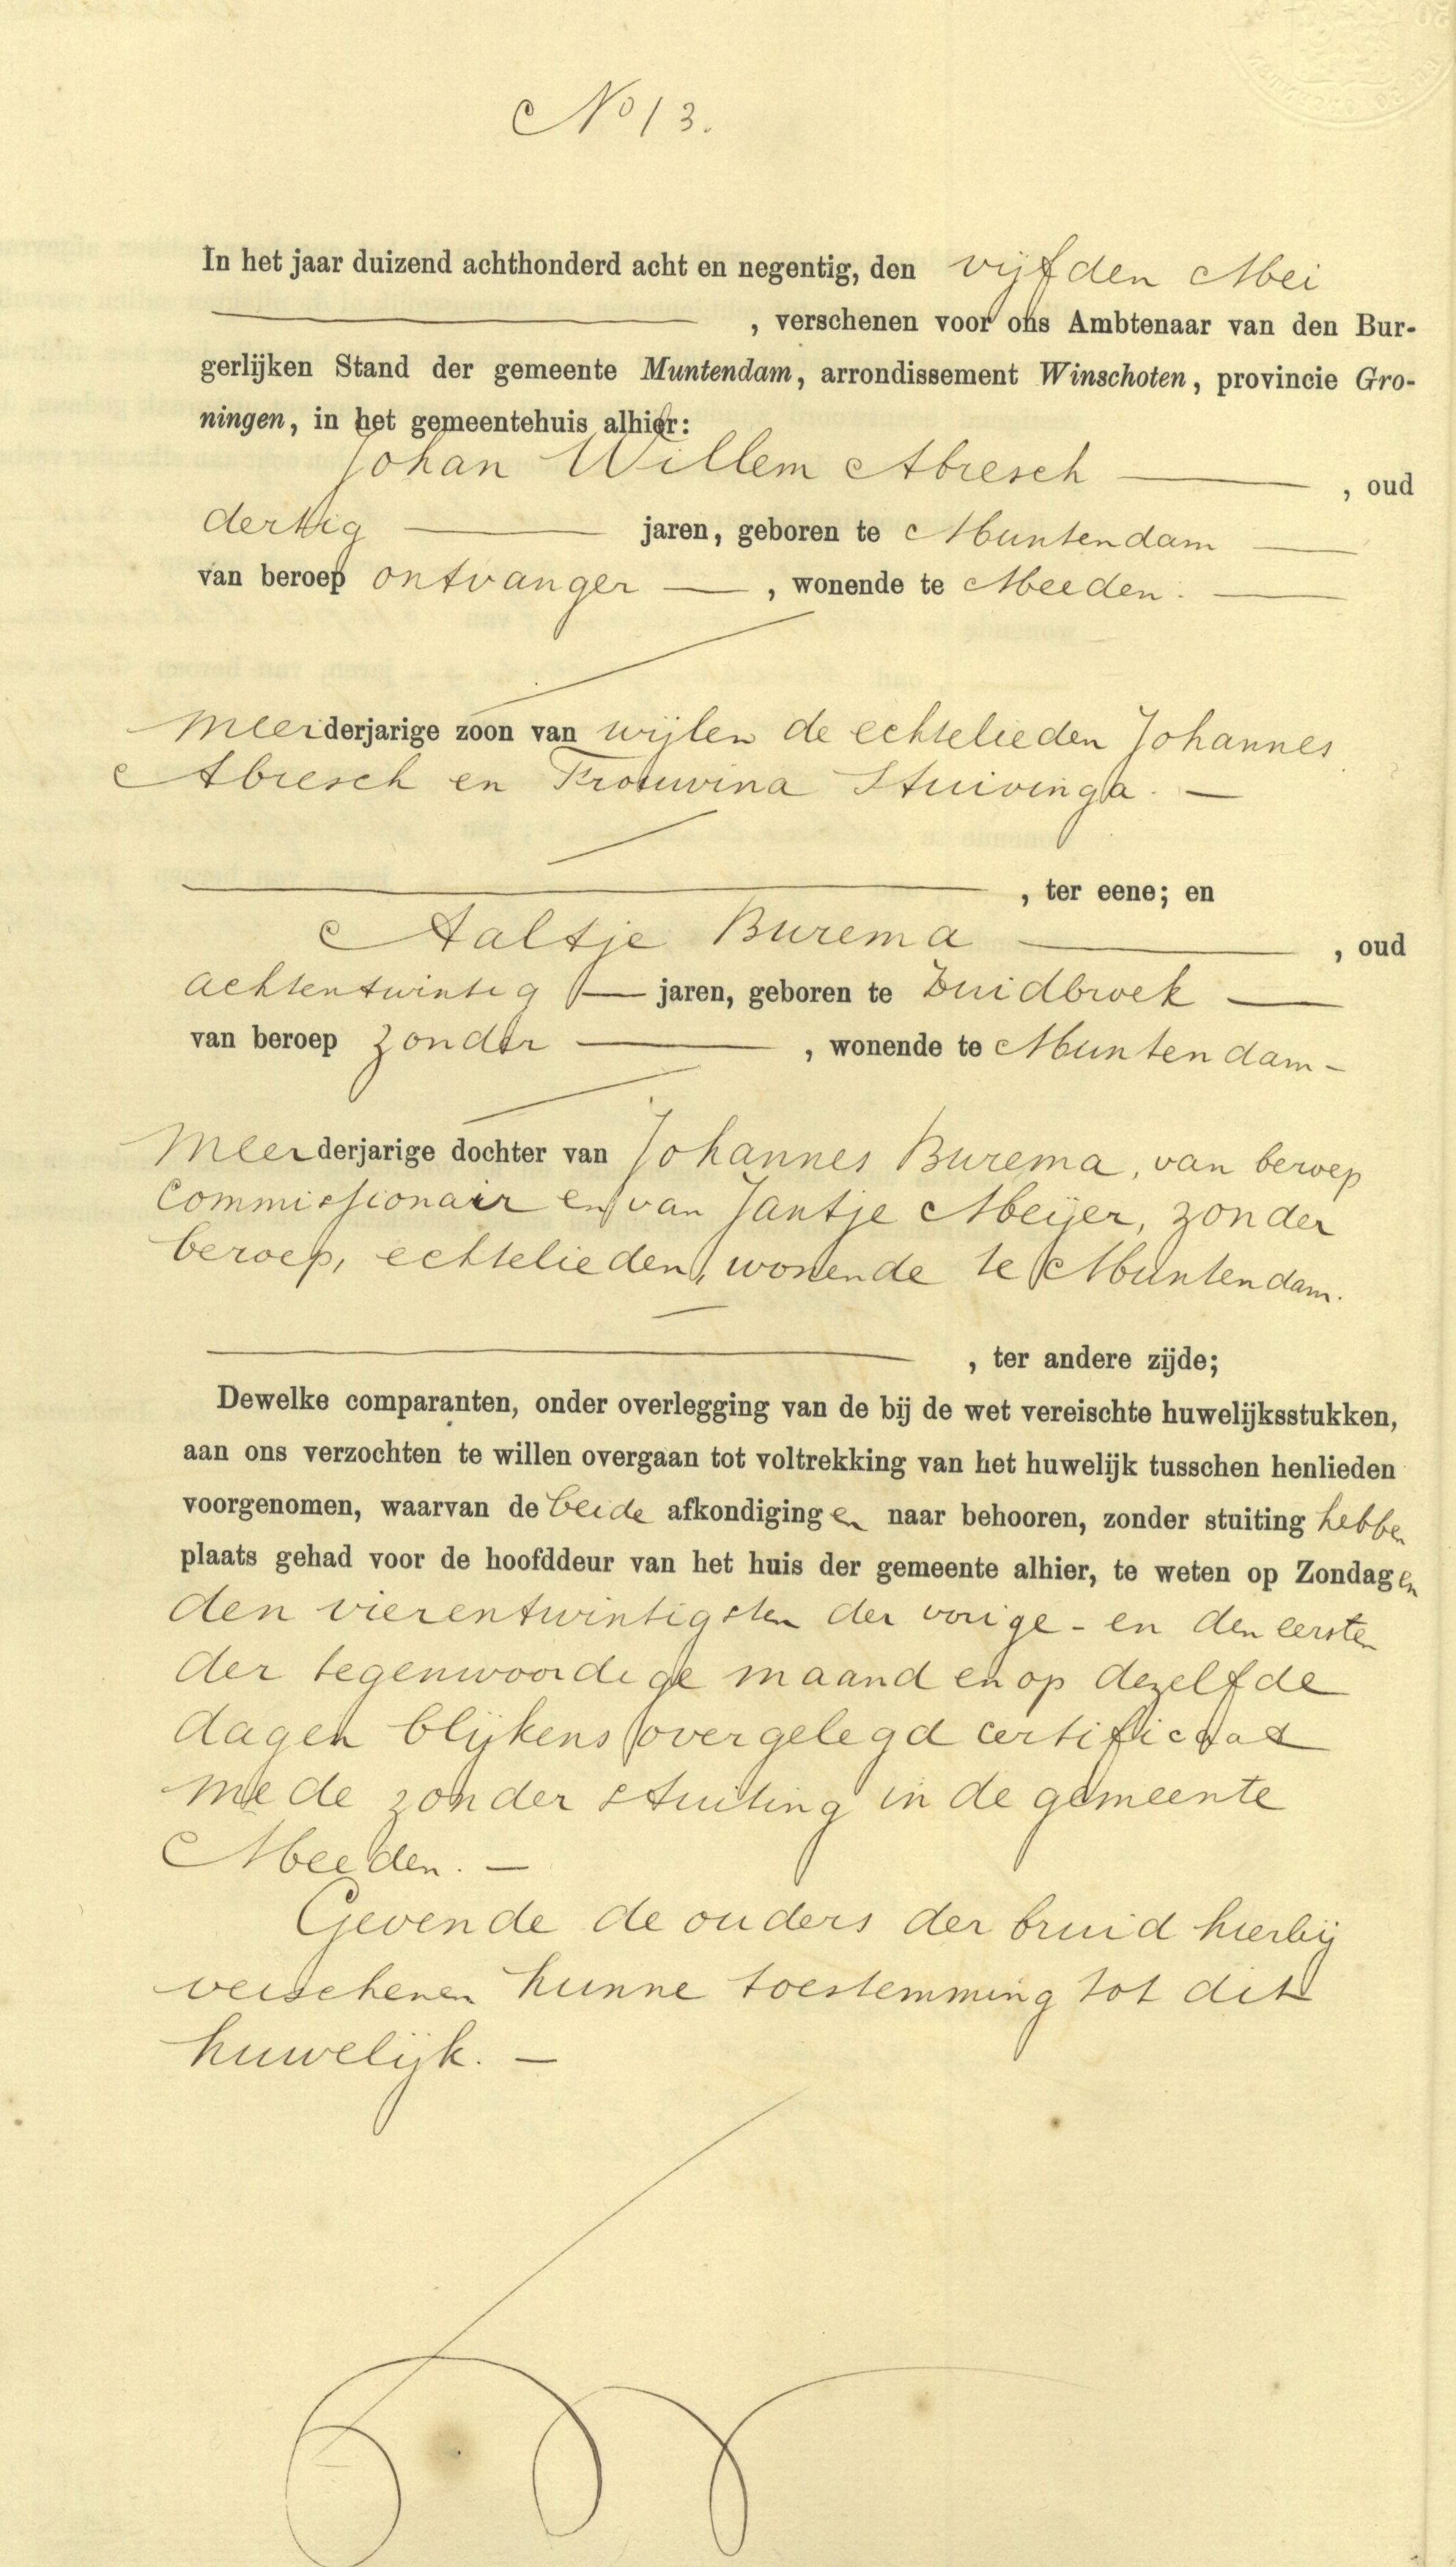 No 13.
In het jaar duizend achthonderd acht en negentig, den vijfden Mei
, verschenen voor ons Ambtenaar van den Bur-
gerlijken Stand der gemeente Muntendam, arrondissement Winschoten, provincie Gro-
ningen, in het gemeentehuis alhier:
Johan Willem Abresch , oud
dertig jaren, geboren te Muntendam
van beroep ontvanger , wonende te Meeden.
meerderjarige zoon van wijlen de echtelieden Johannes
Abresch en Trouwina Stuivinga. —
, ter eene; en
Aaltje Burema , oud
achtentwintig — jaren, geboren te Zuidbroek
van beroep zonder , wonende te Muntendam -
meerderjarige dochter van Johannes Burema, van beroep
commissionair en van Jantje Meijer, zonder
beroep, echtelieden, wonende te Muntendam.
, ter andere zijde;
Dewelke comparanten, onder overlegging van de bij de wet vereischte huwelijksstukken,
aan ons verzochten te willen overgaan tot voltrekking van het huwelijk tusschen henlieden
voorgenomen, waarvan de beide afkondigingen naar behooren, zonder stuiting hebben
plaats gehad voor de hoofddeur van het huis der gemeente alhier, te weten op Zondagen
den vierentwintigsten der vorige - en den eersten
der tegenwoordige maand en op dezelfde
dagen blijkens overgelegd certificaat
mede zonder stuiting in de gemeente
Meeden. —
Gevende de ouders der bruid hierbij
verschenen hunne toestemming tot dit
huwelijk. —